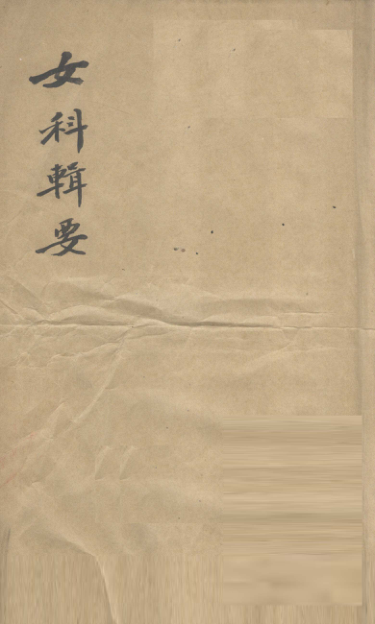 女科輯要